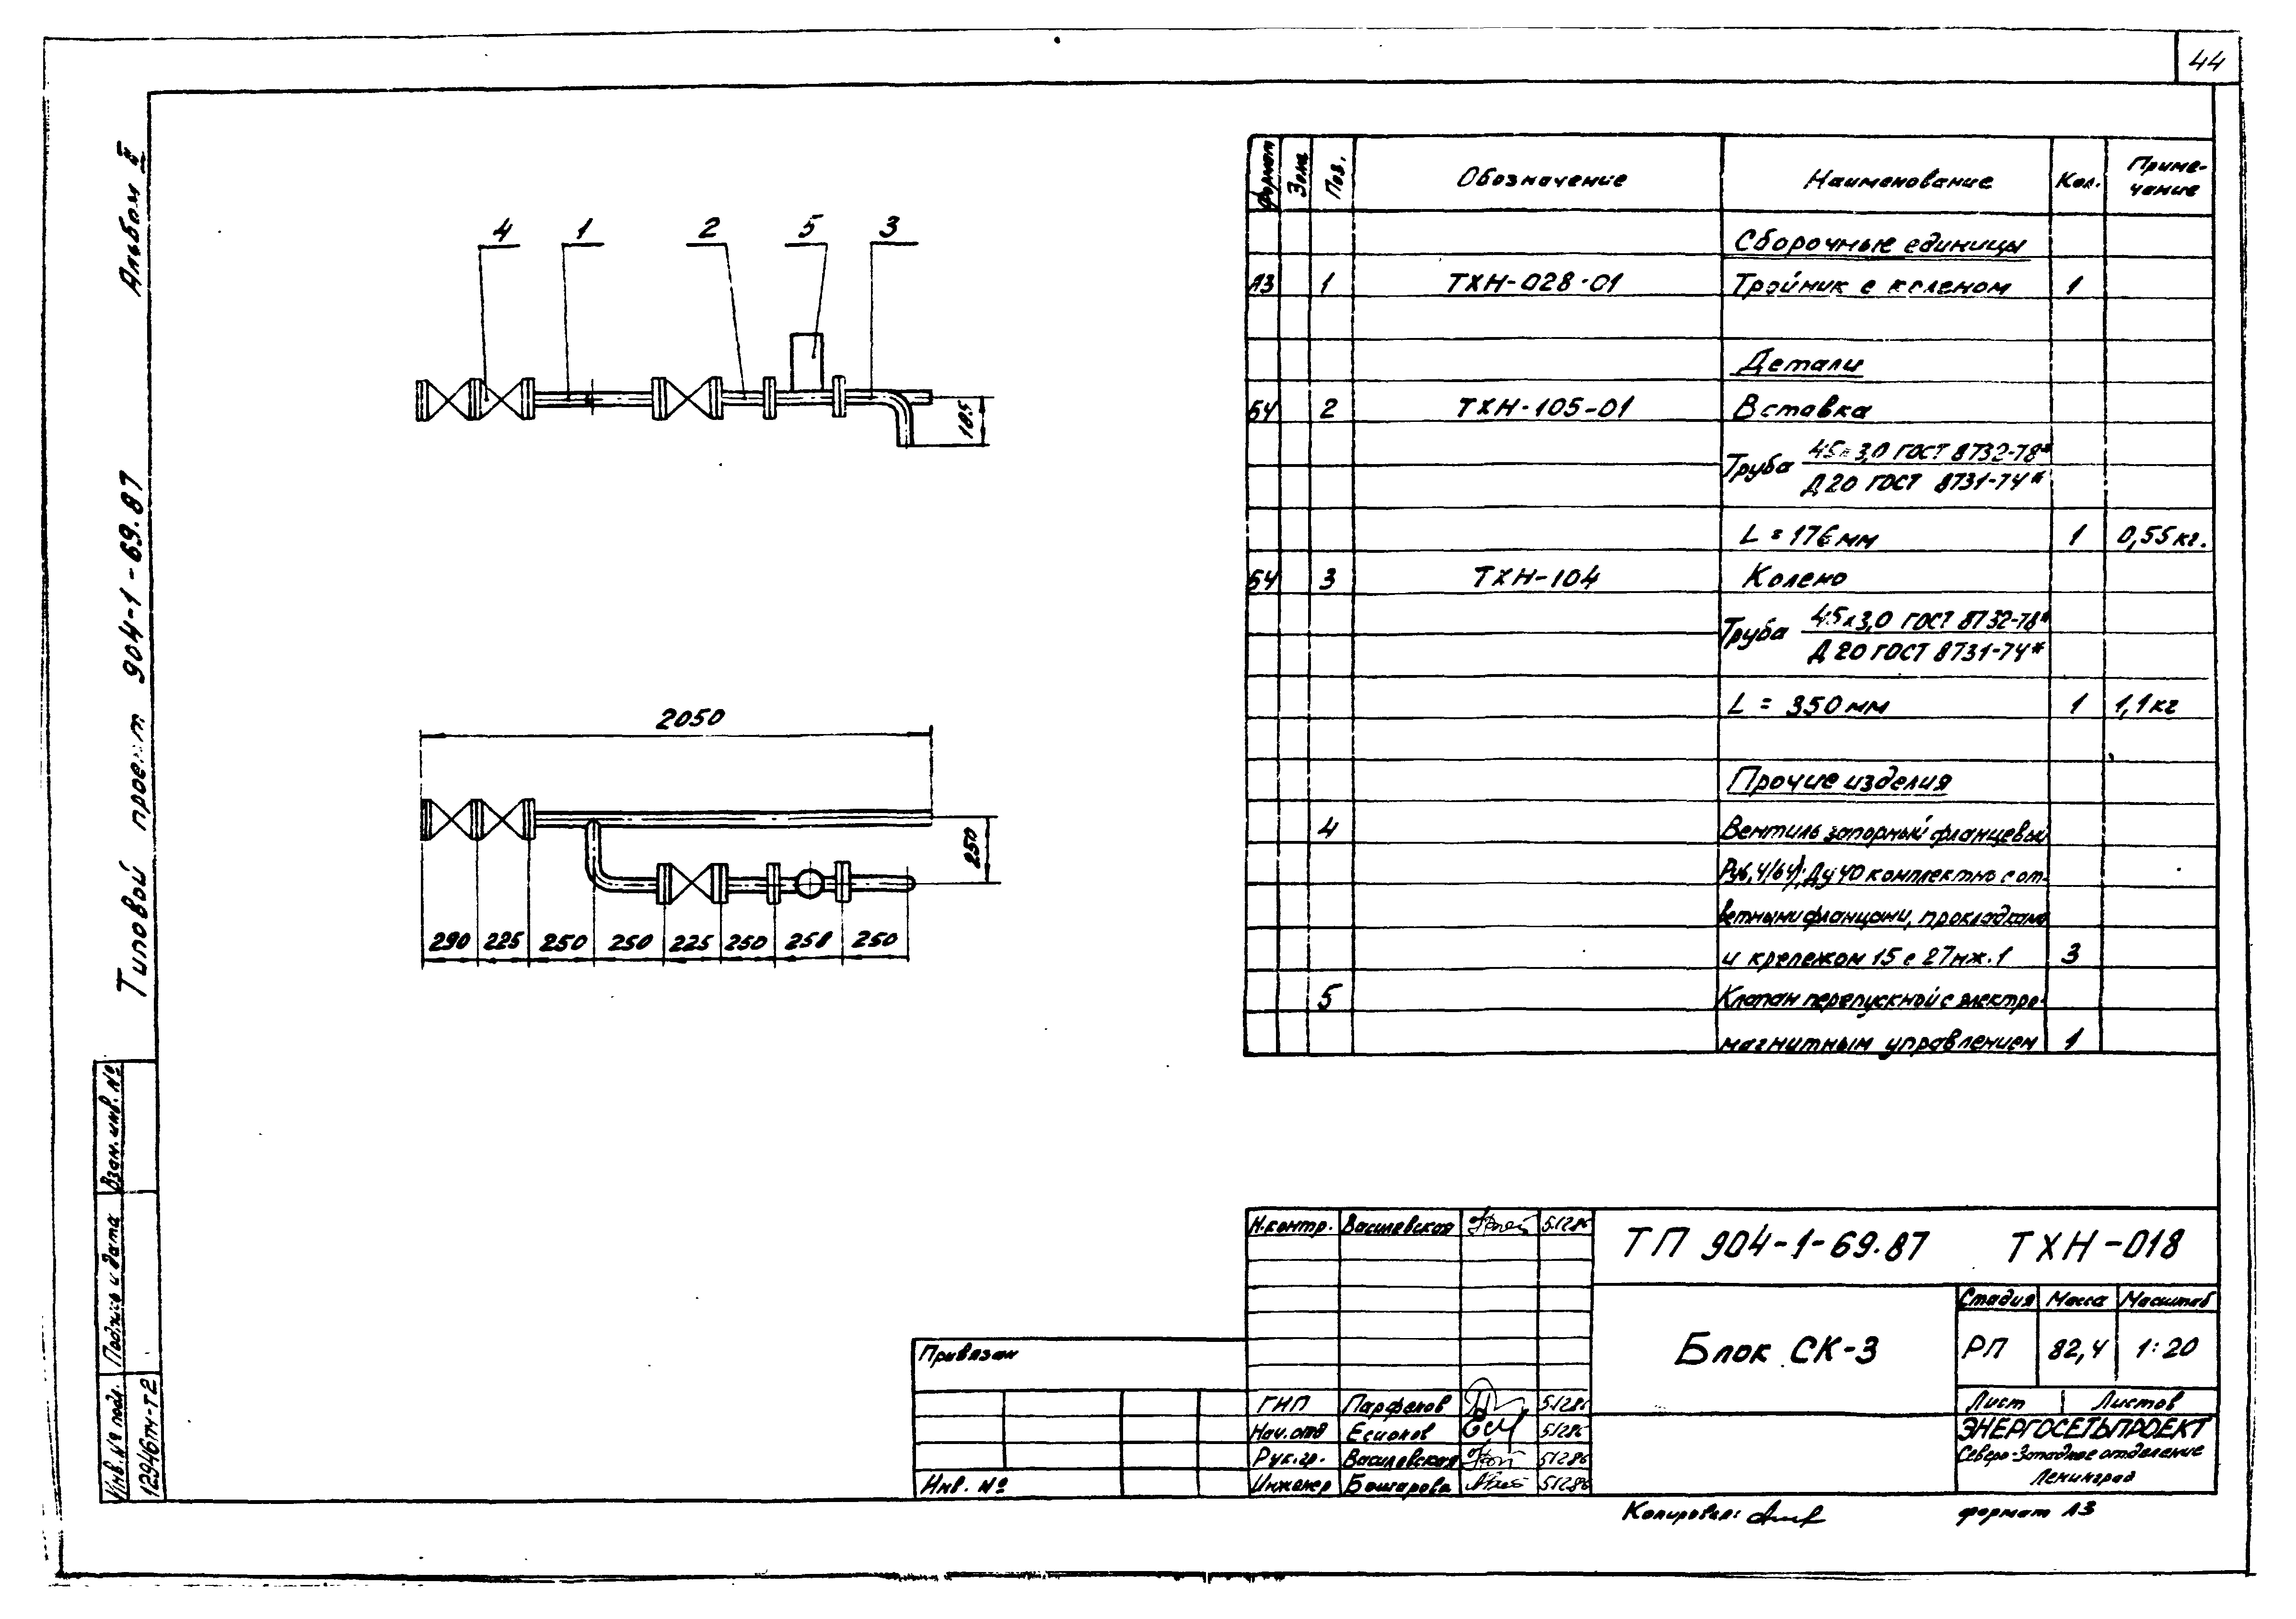 44
Альбом II
Типовой проект 904-1-69.87
4 1 2 5 3
185
2050
250
290 225 250 250 225 250 250 250
Формат Зона Поз. Обозначение Наименование Кол. Приме-
чание
Сборочные единицы
А3 1 ТХН-028-01 Тройник с коленом 1
Детали
БЧ 2 ТХН-105-01 Вставка
Труба 45х3,0 ГОСТ 8732-78*
Д20 ГОСТ 8731-74*
L = 176 мм 1 0,55 кг.
БЧ 3 ТХН-104 Колено
Труба 45х3,0 ГОСТ 8732-78*
Д20 ГОСТ 8731-74*
L = 350 мм 1 1,1 кг
Прочие изделия
4 Вентиль запорный фланцевый
Ру6,4(64); Ду40 комплектно с от-
ветными фланцами, прокладками
и крепежом 15с27нж.1 3
5 Клапан перепускной с электро-
магнитным управлением 1
Взам. инв. №
Подпись и дата
Инв. № подл.
12946тм-Т2
Привязан
Инв. №
Н.контр. Василевская 51286
ГИП Парфенов 51286
Нач. отд Есионов 51286
Рук. гр. Василевская 51286
Инженер Башарова 51286
ТП 904-1-69.87 ТХН-018
Блок СК-3
Стадия Масса Масштаб
РП 82,4 1:20
Лист Листов
ЭНЕРГОСЕТЬПРОЕКТ
Северо-Западное отделение
Ленинград
Копировал: формат А3